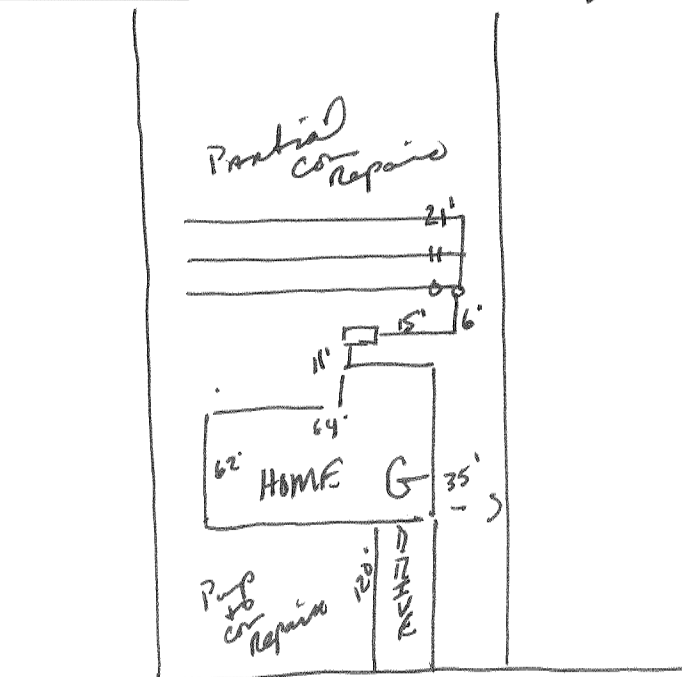 Partial
Con
Repair
21'
11
0
15'
6'
11'
64'
62'
HOME G
35'
120'
DRIVE
Pump
to
con
Repair